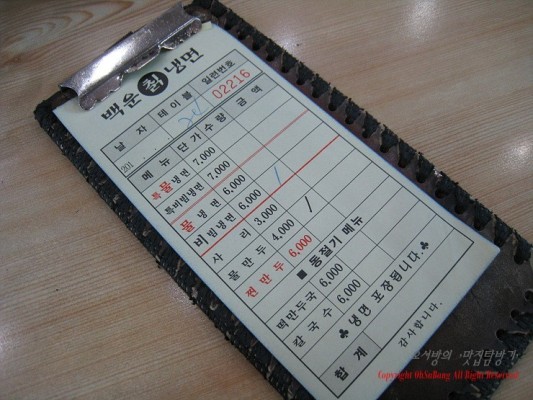 백운칡냉면
날 자 테이블 일련번호
201 . . 24 02216
메 뉴 단 가 수 량 금 액
특물냉면 7,000
특비빔냉면 7,000
물 냉 면 6,000 /
비빔냉면 6,000
사 리 3,000 /
물 만 두 4,000
찐 만 두 6,000
■ 동절기 메뉴
떡만두국 6,000
칼 국 수 6,000
♣ 냉면 포장됩니다.♣
합 계
감사합니다.
오서방의 맛집탐방기
Copyright OhSuBang All Right Reserved